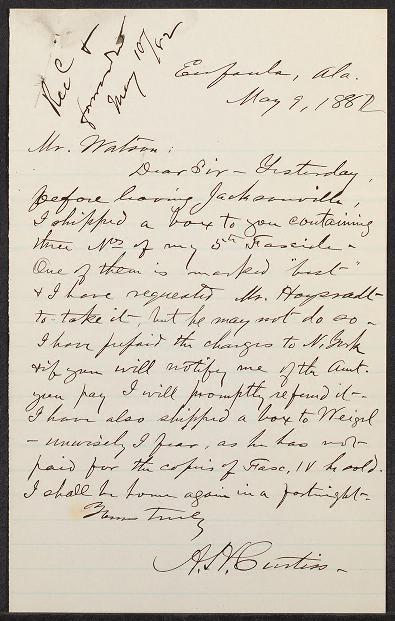 Rec'd &
forwarded
May 10/82
Eufaula, Ala.
May 9, 1882
Mr. Watson:
Dear Sir – Yesterday,
before leaving Jacksonville,
I shipped a box to you containing
three Nos of my 5th Fascicle –
One of them is marked "best"
& I have requested Mr. Haysradt
to take it, but he may not do so –
I have prepaid the charges to N. York
& if you will notify me of the Amt.
you pay I will promptly refund it –
I have also shipped a box to Weigel
– unwisely I fear, as he has not
paid for the copies of Fasc. IV he sold.
I shall be home again in a fortnight –
Yours truly
A. H. Curtiss –